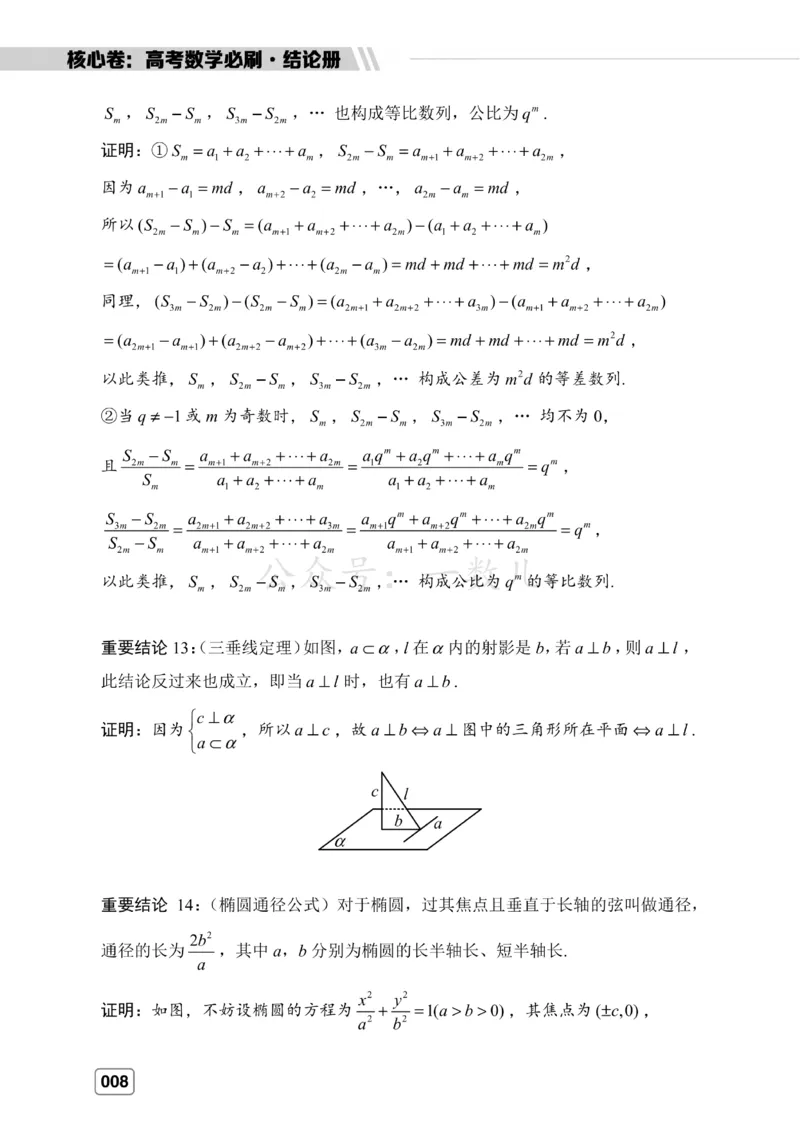 核心卷：高考数学必刷·结论册
Sₘ，S₂ₘ−Sₘ，S₃ₘ−S₂ₘ，⋯ 也构成等比数列，公比为qᵐ.
证明：①Sₘ=a₁+a₂+⋯+aₘ，S₂ₘ−Sₘ=aₘ₊₁+aₘ₊₂+⋯+a₂ₘ，
因为aₘ₊₁−a₁=md，aₘ₊₂−a₂=md，⋯，a₂ₘ−aₘ=md，
所以(S₂ₘ−Sₘ)−Sₘ=(aₘ₊₁+aₘ₊₂+⋯+a₂ₘ)−(a₁+a₂+⋯+aₘ)
=(aₘ₊₁−a₁)+(aₘ₊₂−a₂)+⋯+(a₂ₘ−aₘ)=md+md+⋯+md=m²d，
同理，(S₃ₘ−S₂ₘ)−(S₂ₘ−Sₘ)=(a₂ₘ₊₁+a₂ₘ₊₂+⋯+a₃ₘ)−(aₘ₊₁+aₘ₊₂+⋯+a₂ₘ)
=(a₂ₘ₊₁−aₘ₊₁)+(a₂ₘ₊₂−aₘ₊₂)+⋯+(a₃ₘ−a₂ₘ)=md+md+⋯+md=m²d，
以此类推，Sₘ，S₂ₘ−Sₘ，S₃ₘ−S₂ₘ，⋯ 构成公差为m²d的等差数列.
②当q≠−1或m为奇数时，Sₘ，S₂ₘ−Sₘ，S₃ₘ−S₂ₘ，⋯ 均不为0，
且 (S₂ₘ−Sₘ)/Sₘ=(aₘ₊₁+aₘ₊₂+⋯+a₂ₘ)/(a₁+a₂+⋯+aₘ)=(a₁qᵐ+a₂qᵐ+⋯+aₘqᵐ)/(a₁+a₂+⋯+aₘ)=qᵐ，
(S₃ₘ−S₂ₘ)/(S₂ₘ−Sₘ)=(a₂ₘ₊₁+a₂ₘ₊₂+⋯+a₃ₘ)/(aₘ₊₁+aₘ₊₂+⋯+a₂ₘ)=(aₘ₊₁qᵐ+aₘ₊₂qᵐ+⋯+a₂ₘqᵐ)/(aₘ₊₁+aₘ₊₂+⋯+a₂ₘ)=qᵐ，
公众号：一数儿
以此类推，Sₘ，S₂ₘ−Sₘ，S₃ₘ−S₂ₘ，⋯ 构成公比为qᵐ的等比数列.
重要结论13：(三垂线定理)如图，a⊂α，l在α内的射影是b，若a⊥b，则a⊥l，
此结论反过来也成立，即当a⊥l时，也有a⊥b.
证明：因为{c⊥α, a⊂α，所以a⊥c，故a⊥b⇔a⊥图中的三角形所在平面⇔a⊥l.
c l
b a
α
重要结论 14：(椭圆通径公式)对于椭圆，过其焦点且垂直于长轴的弦叫做通径，
通径的长为 2b²/a，其中a，b分别为椭圆的长半轴长、短半轴长.
证明：如图，不妨设椭圆的方程为 x²/a²+y²/b²=1(a>b>0)，其焦点为(±c,0)，
008